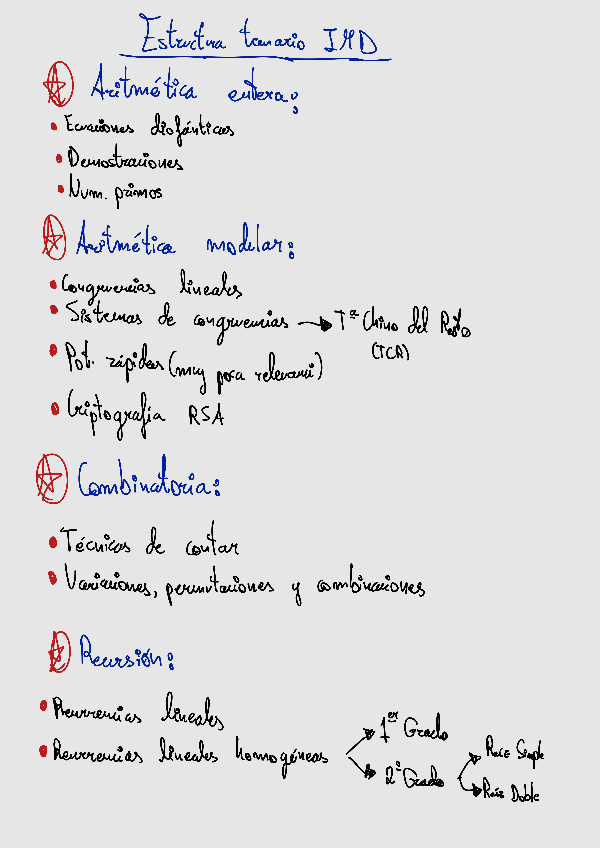 Estructura temario IMD
Aritmética entera:
Ecuaciones diofánticas
Demostraciones
Num. primos
Aritmética modular:
Congruencias lineales
Sistemas de congruencias → Tª Chino del Resto
(TCR)
Pot. rápidas (muy poca relevancia)
Criptografía RSA
Combinatoria:
Técnicas de contar
Variaciones, permutaciones y combinaciones
Recursión:
Recurrencias lineales
Recurrencias lineales homogéneas
1er Grado
2º Grado
Raíz Simple
Raíz Doble